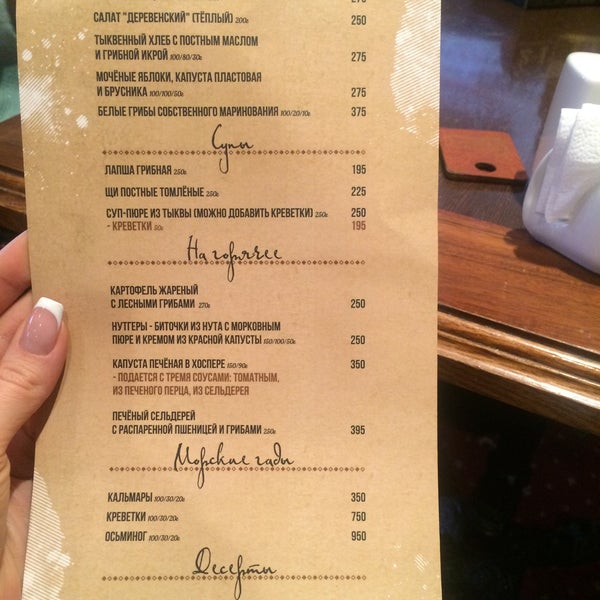 САЛАТ "ДЕРЕВЕНСКИЙ" (ТЁПЛЫЙ) 200г 250
ТЫКВЕННЫЙ ХЛЕБ С ПОСТНЫМ МАСЛОМ
И ГРИБНОЙ ИКРОЙ 100/80/30г 275
МОЧЁНЫЕ ЯБЛОКИ, КАПУСТА ПЛАСТОВАЯ
И БРУСНИКА 100/100/50г 275
БЕЛЫЕ ГРИБЫ СОБСТВЕННОГО МАРИНОВАНИЯ 100/20/10г 375
Супы
ЛАПША ГРИБНАЯ 250г 195
ЩИ ПОСТНЫЕ ТОМЛЁНЫЕ 250г 225
СУП-ПЮРЕ ИЗ ТЫКВЫ (МОЖНО ДОБАВИТЬ КРЕВЕТКИ) 250г 250
- КРЕВЕТКИ 50г 195
На горячее
КАРТОФЕЛЬ ЖАРЕНЫЙ
С ЛЕСНЫМИ ГРИБАМИ 270г 250
НУТГЕРЫ - БИТОЧКИ ИЗ НУТА С МОРКОВНЫМ
ПЮРЕ И КРЕМОМ ИЗ КРАСНОЙ КАПУСТЫ 150/100/50г 250
КАПУСТА ПЕЧЁНАЯ В ХОСПЕРЕ 150/90г 350
- ПОДАЕТСЯ С ТРЕМЯ СОУСАМИ: ТОМАТНЫМ,
ИЗ ПЕЧЕНОГО ПЕРЦА, ИЗ СЕЛЬДЕРЕЯ
ПЕЧЁНЫЙ СЕЛЬДЕРЕЙ
С РАСПАРЕННОЙ ПШЕНИЦЕЙ И ГРИБАМИ 250г 395
Морские гады
КАЛЬМАРЫ 100/30/20г 350
КРЕВЕТКИ 100/30/20г 750
ОСЬМИНОГ 100/30/20г 950
Десерты